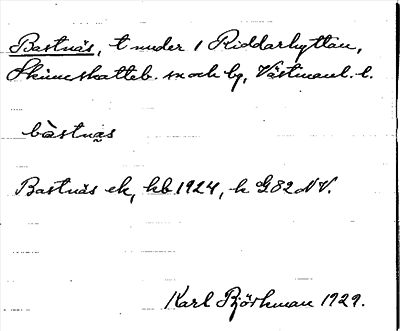 Bastnäs, t under 1 Riddarhyttan,
Skinnskatteb. sn och bg, Västmanl. l.
bàstnäs
Bastnäs ek, hb 1924, k G82 NV.
Karl Björkman 1929.